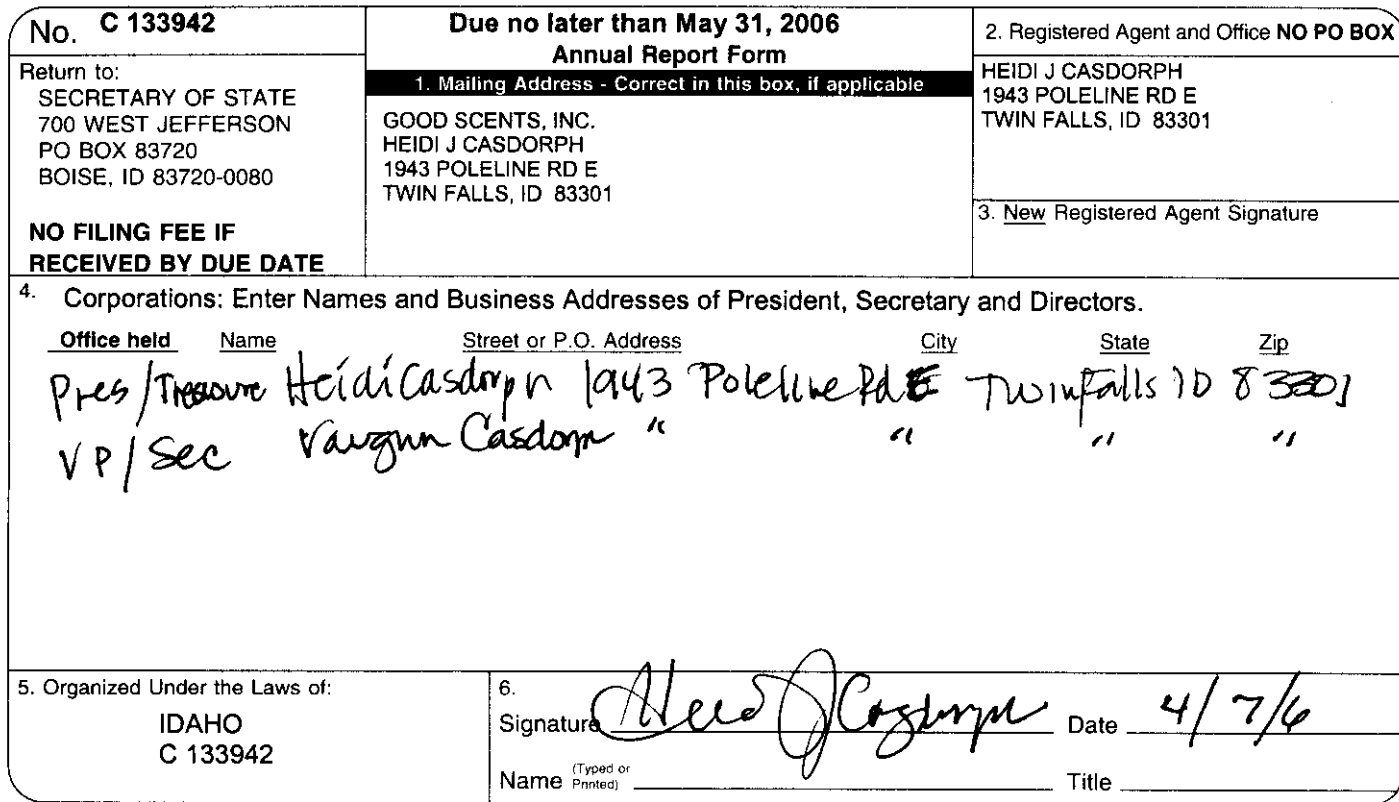 No. C 133942
Return to:
SECRETARY OF STATE
700 WEST JEFFERSON
PO BOX 83720
BOISE, ID 83720-0080
NO FILING FEE IF
RECEIVED BY DUE DATE
Due no later than May 31, 2006
Annual Report Form
1. Mailing Address - Correct in this box, if applicable
GOOD SCENTS, INC.
HEIDI J CASDORPH
1943 POLELINE RD E
TWIN FALLS, ID 83301
2. Registered Agent and Office NO PO BOX
HEIDI J CASDORPH
1943 POLELINE RD E
TWIN FALLS, ID 83301
3. New Registered Agent Signature
4. Corporations: Enter Names and Business Addresses of President, Secretary and Directors.
Office held Name Street or P.O. Address City State Zip
Pres/Treasure Heidi Casdorph 1943 Poleline Rd E Twin Falls ID 83301
VP/Sec Vaughn Casdorph " " " "
5. Organized Under the Laws of:
IDAHO
C 133942
6.
Signature Heidi J Casdorph Date 4/7/6
Name (Typed or Printed) Title